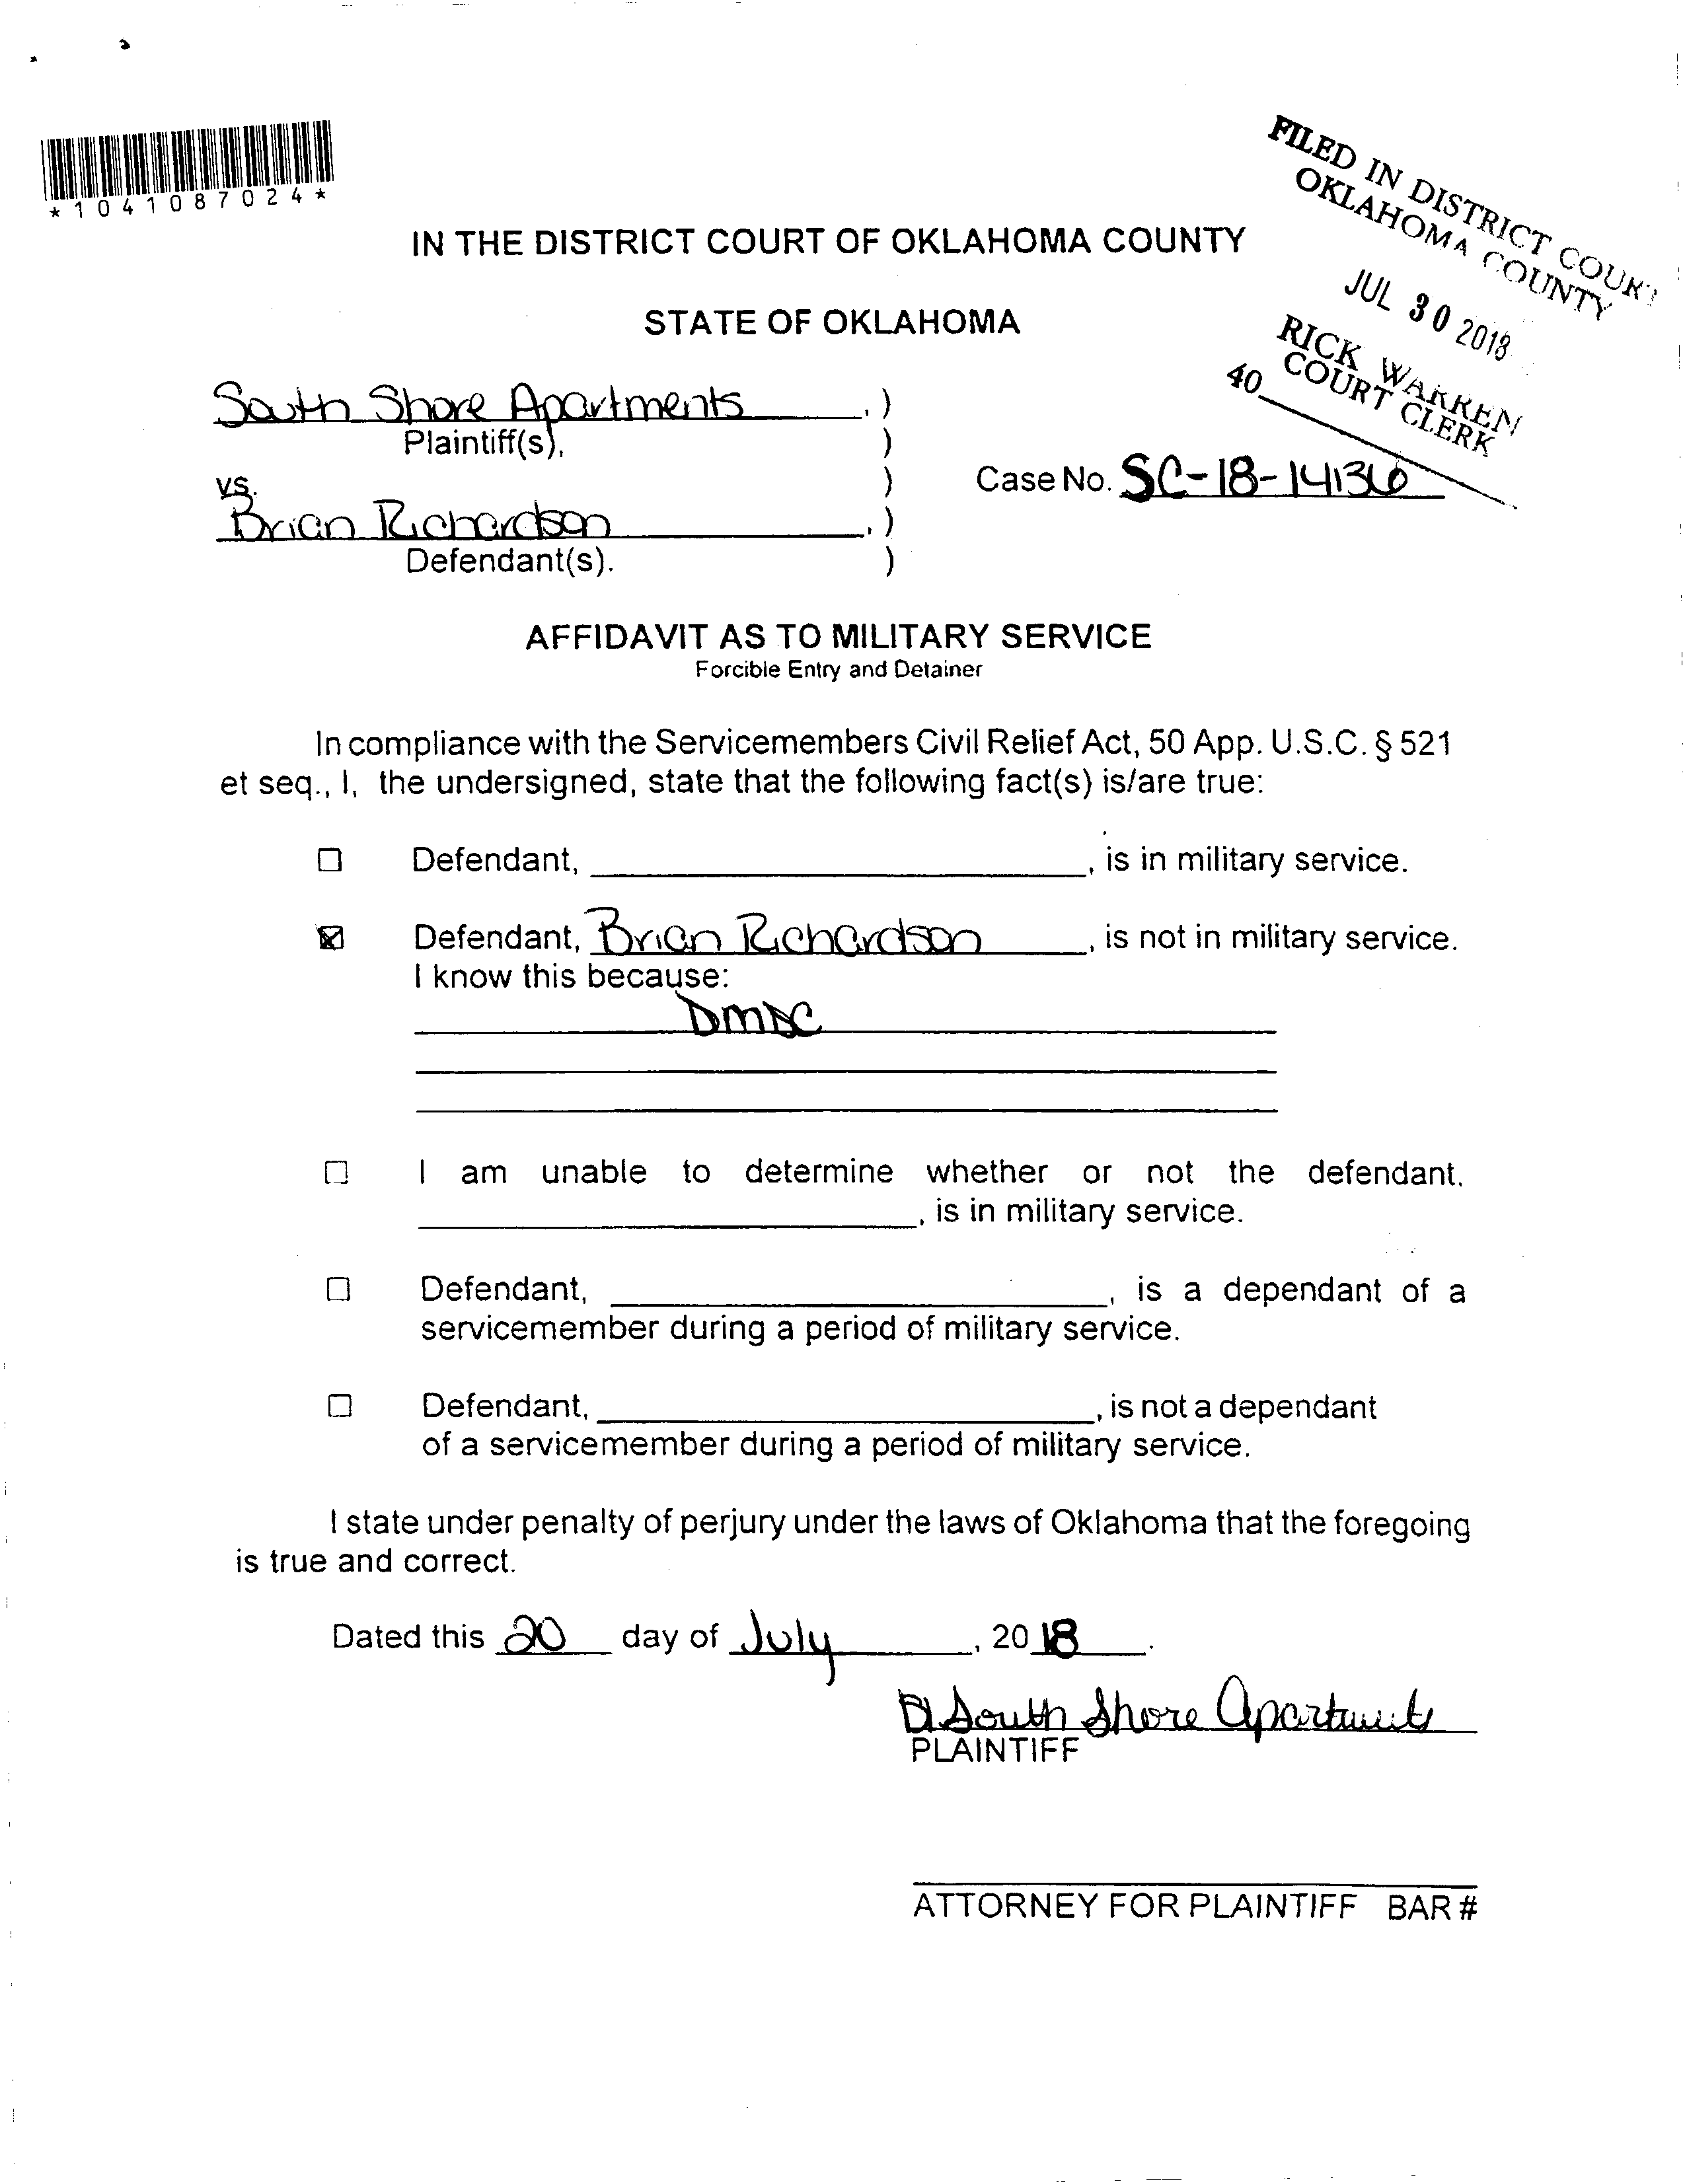 *1041087024*
FILED IN DISTRICT COURT
OKLAHOMA COUNTY
JUL 30 2018
RICK WARREN
COURT CLERK
40
IN THE DISTRICT COURT OF OKLAHOMA COUNTY
STATE OF OKLAHOMA
South Shore Apartments , )
Plaintiff(s), )
vs. )
Case No. SC-18-14136
Brian Richardson , )
Defendant(s). )
AFFIDAVIT AS TO MILITARY SERVICE
Forcible Entry and Detainer
In compliance with the Servicemembers Civil Relief Act, 50 App. U.S.C. § 521
et seq., I, the undersigned, state that the following fact(s) is/are true:
☐ Defendant, , is in military service.
☒ Defendant, Brian Richardson , is not in military service.
I know this because:
DMDC
☐ I am unable to determine whether or not the defendant.
, is in military service.
☐ Defendant, , is a dependant of a
servicemember during a period of military service.
☐ Defendant, , is not a dependant
of a servicemember during a period of military service.
I state under penalty of perjury under the laws of Oklahoma that the foregoing
is true and correct.
Dated this 20 day of July , 20 18 .
South Shore Apartments
PLAINTIFF
ATTORNEY FOR PLAINTIFF BAR #